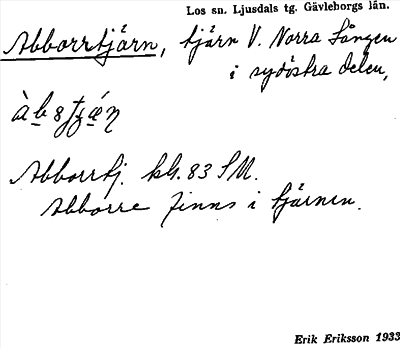 Los sn. Ljusdals tg. Gävleborgs län.
Abborrtjärn, tjärn V. Norra Lången
i sydöstra delen,
Abborrtj. kh. 83 SM.
Abborre finns i tjärnen.
Erik Eriksson 1933